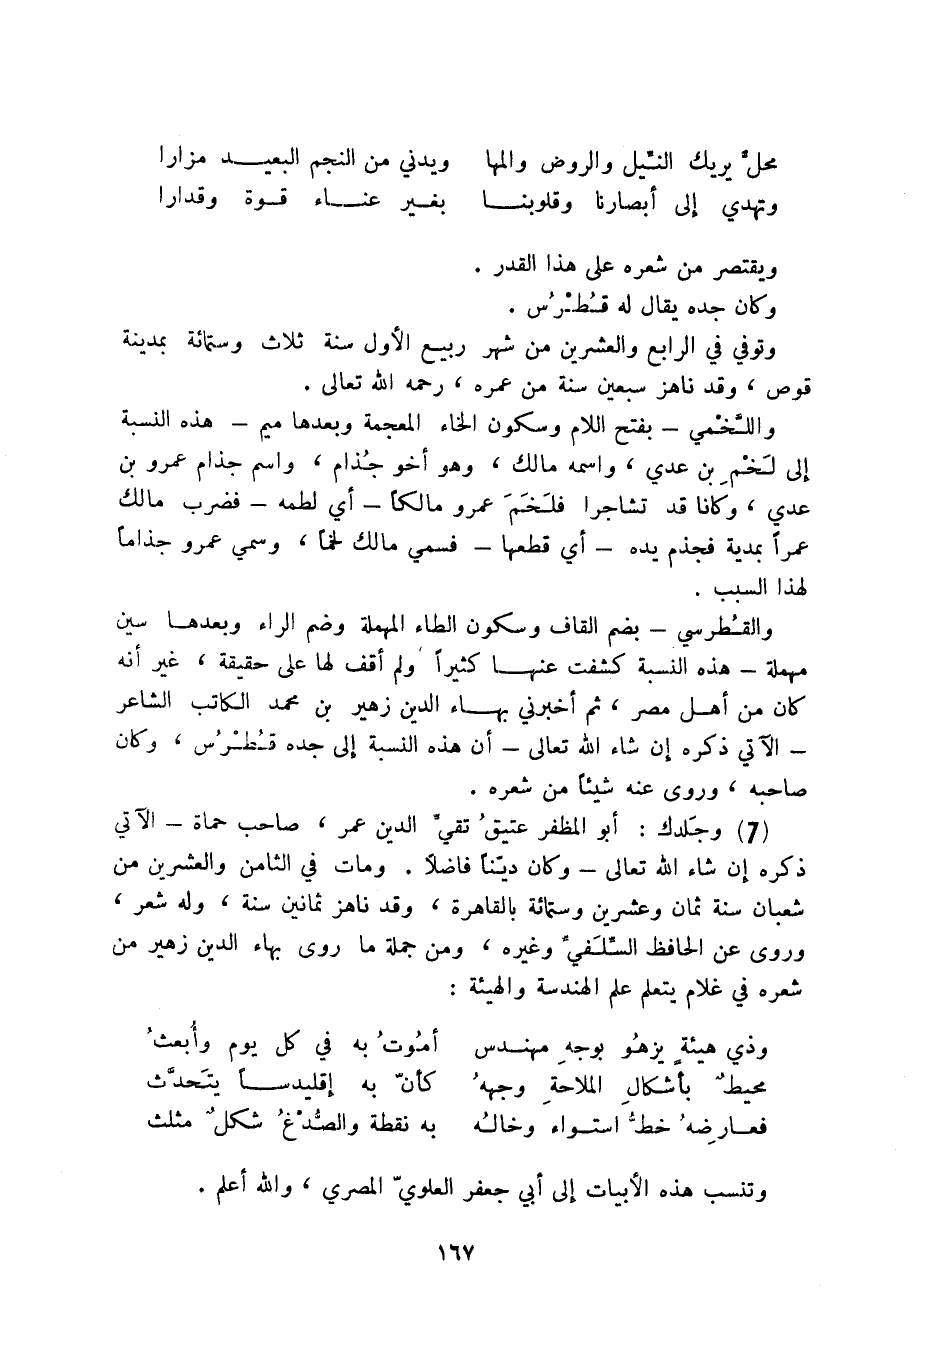 محلٌّ يريك النّيل والروض والمها ويدني من النجم البعيد مزارا
وتهدي إلى أبصارنا وقلوبنا بغير عناء قوة وقدارا
ويقتصر من شعره على هذا القدر .
وكان جده يقال له قُطْرُس .
وتوفي في الرابع والعشرين من شهر ربيع الأول سنة ثلاث وستمائة بمدينة
قوص ، وقد ناهز سبعين سنة من عمره ، رحمه الله تعالى .
واللَّخْمي – بفتح اللام وسكون الخاء المعجمة وبعدها ميم – هذه النسبة
إلى لَخْمِ بن عدي ، واسمه مالك ، وهو أخو جُذام ، واسم جذام عمرو بن
عدي ، وكانا قد تشاجرا فلَخَمَ عمرو مالكاً – أي لطمه – فضرب مالك
عمراً بمدية فجذم يده – أي قطعها – فسمي مالك لخماً ، وسمي عمرو جذاماً
لهذا السبب .
والقُطرسي – بضم القاف وسكون الطاء المهملة وضم الراء وبعدها سين
مهملة – هذه النسبة كشفت عنها كثيراً ولم أقف لها على حقيقة ، غير أنه
كان من أهل مصر ، ثم أخبرني بهاء الدين زهير بن محمد الكاتب الشاعر
– الآتي ذكره إن شاء الله تعالى – أن هذه النسبة إلى جده قُطْرُس ، وكان
صاحبه ، وروى عنه شيئاً من شعره .
(7) وجَلدك : أبو المظفر عتيقُ تقيِّ الدين عمر ، صاحب حماة – الآتي
ذكره إن شاء الله تعالى – وكان ديّناً فاضلاً . ومات في الثامن والعشرين من
شعبان سنة ثمان وعشرين وستمائة بالقاهرة ، وقد ناهز ثمانين سنة ، وله شعر ،
وروى عن الحافظ السِّلَفيِّ وغيره ، ومن جملة ما روى بهاء الدين زهير من
شعره في غلام يتعلم علم الهندسة والهيئة :
وذي هيئةٍ يزهُو بوجهِ مهندس أمُوتُ به في كل يوم وأُبعثُ
محيطٌ بأشكالِ الملاحةِ وجههُ كأنّ به إقليدساً يتَحدَّث
فعارِضهُ خطُّ استواء وخالُه به نقطة والصُّدْغُ شكلٌ مثلث
وتنسب هذه الأبيات إلى أبي جعفر العلويّ المصري ، والله أعلم .
١٦٧